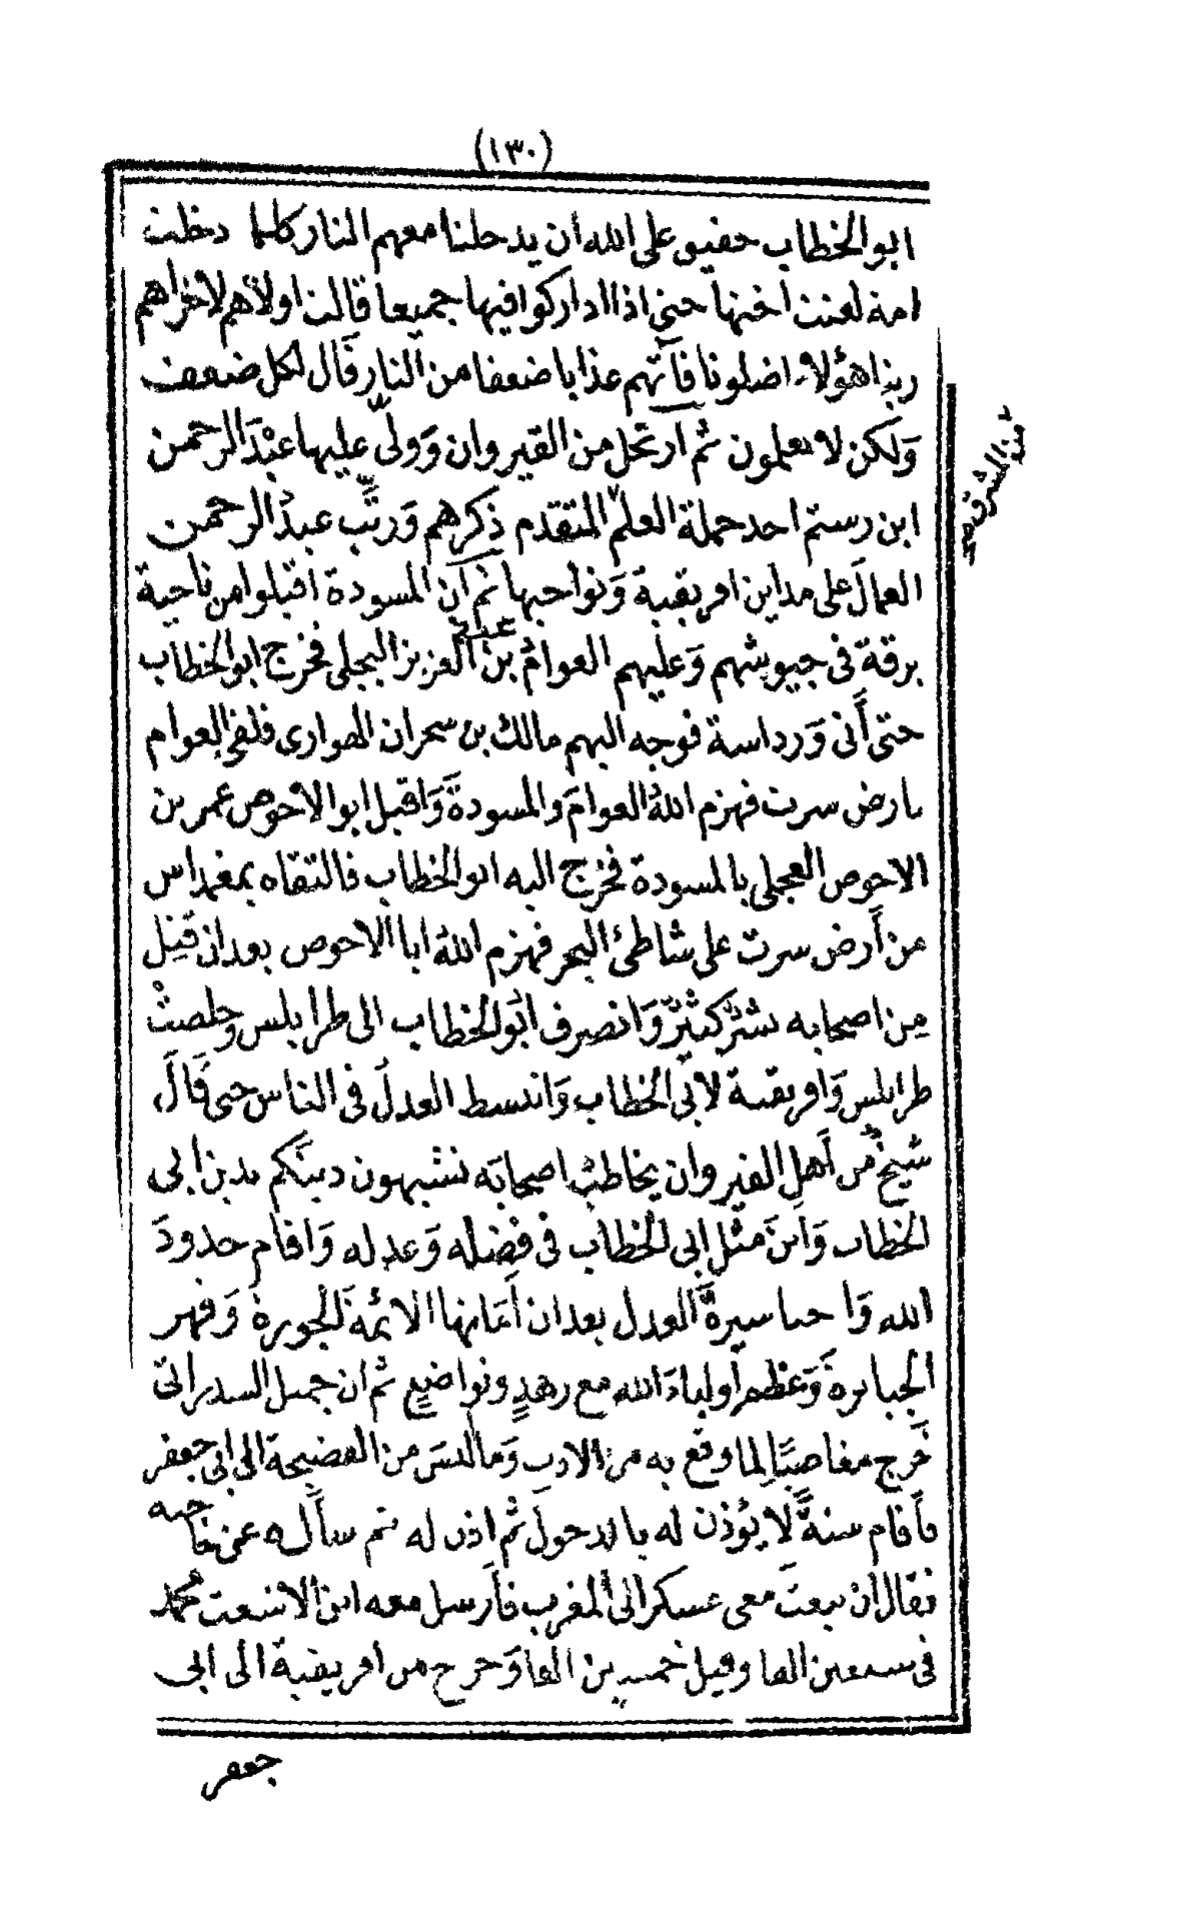 (١٣٠)
ابو الخطاب حقيق على الله ان يدخلنا معهم النار كلما دخلت
امة لعنت اختها حتى اذا اداركوا فيها جميعا قالت اولاهم لاخراهم
ربنا هؤلاء اضلونا فآتهم عذابا ضعفا من النار قال لكل ضعف
وَلكن لا يعلمون ثم ارتحل من القيروان وَولى عليها عبْدَ الرحمن
من المشرق صح
ابن رستم احد حملة العلم المتقدم ذكرهم وَرتَّب عبدُ الرحمن
العمالَ على مداين افريقية وَنواحيها ثم ان المسودة اقبلوا من ناحية
برقة فى جيوشهم وَعليهم العوامُ بن عبد العزيز البجلى فخرج ابو الخطاب
حتى أتى وَرداسة فوجه اليهم مالك بن سحران الهوارى فلقى العوام
بارض سرت فهزم اللهُ العوامَ والمسودةَ وَاقبل ابو الاحوص عمر بن
الاحوص العجلى بالمسودة فخرج اليه ابو الخطاب فالتقاه بمغمداس
من أرض سرت على شاطئ البحر فهزم اللهُ ابا الاحوص بعد ان قتِل
مِن اصحابه بشرٌ كثيرٌ وَانصرف ابُو الخطاب الى طرابلس وخلصتْ
طرابلس وَافريقية لابى الخطاب وَانبسط العدلُ فى الناس حتى قَالَ
شيخٌ من أهلِ القيروان يخاطبُ اصحابَه تشبهون دينَكم بدين ابى
الخطاب وَاينَ مثلُ ابى الخطاب فى فضله وَعدله وَاقام حدودَ
الله وَاحيا سيرةَ العدل بعد ان أمَاتها الائمة الجورة وَقهر
الجبابرة وَعظم أولياءَ الله مع زهدٍ وتواضعٍ ثم ان جميل السدراتى
خَرج مغاضبًا لما وقع به من الادب وَما لبسَ من الفضيحة الى ابى جعفر
فأقام سنةً لا يؤذن له بالدخول ثم اذن له ثم سأله عن حاجته
فقال أن تبعثَ معى عسكرا الى المغرب فأرسل معه ابن الاشعث محمد
فى سبعين الفا وقيل خمسين الفا وَخرج من افريقية الى ابى
جعفر